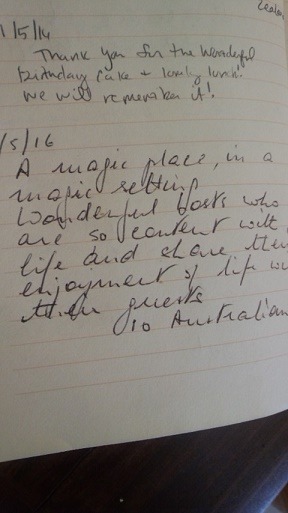 1/5/14
Thank you for the wonderful
birthday cake + lovely lunch!
We will remember it!
/5/16
A magic place, in a
magic setting
Wonderful hosts who
are so content with
life and share their
enjoyment of life
their guests
10 Australian